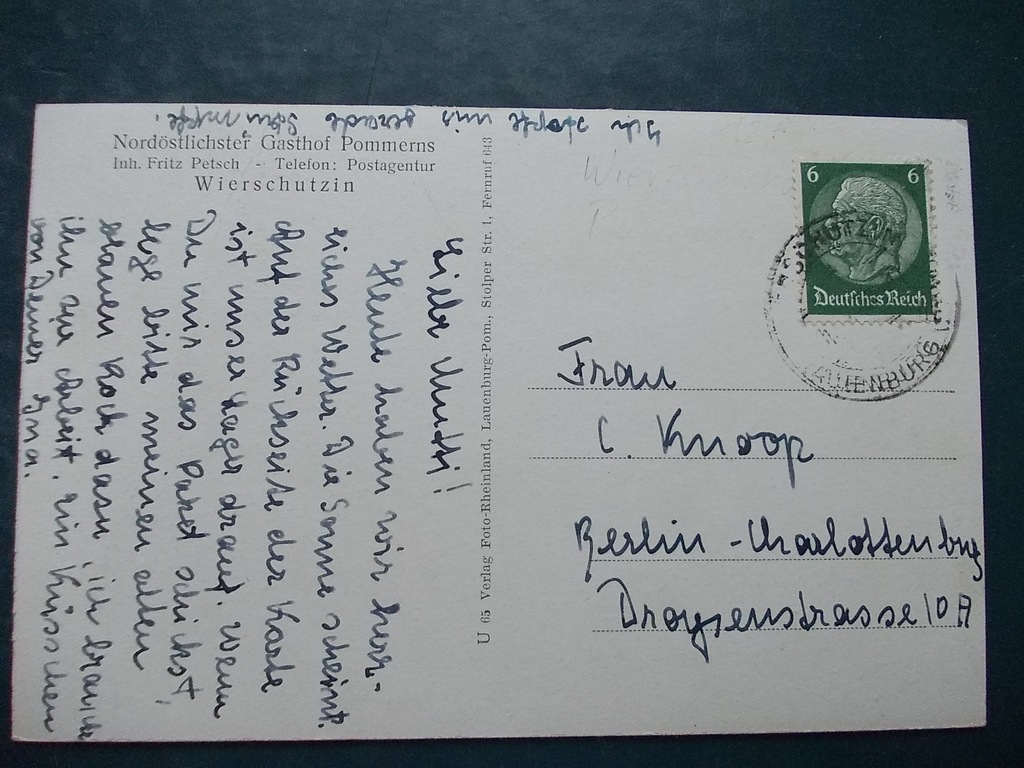 Nordöstlichster Gasthof Pommerns
Inh. Fritz Petsch - Telefon: Postagentur
Wierschutzin
Liebe Mutti!
Heute haben wir herr-
liches Wetter. Die Sonne scheint.
Auf der Rückseite der Karte
ist unser Lager drauf. Wenn
Du mir das Paket schickst,
lege bitte meinen alten
blauen Rock dazu, ich brauche
ihn zur Arbeit. Ein Küsschen
von Deiner
gerade
U 65 Verlag Foto-Rheinland, Lauenburg-Pom., Stolper Str. 1, Fernruf 643
6 6
Deutsches Reich
LAUENBURG
Frau
C. Knoop
Berlin-Charlottenburg
Droysenstrasse 10 A